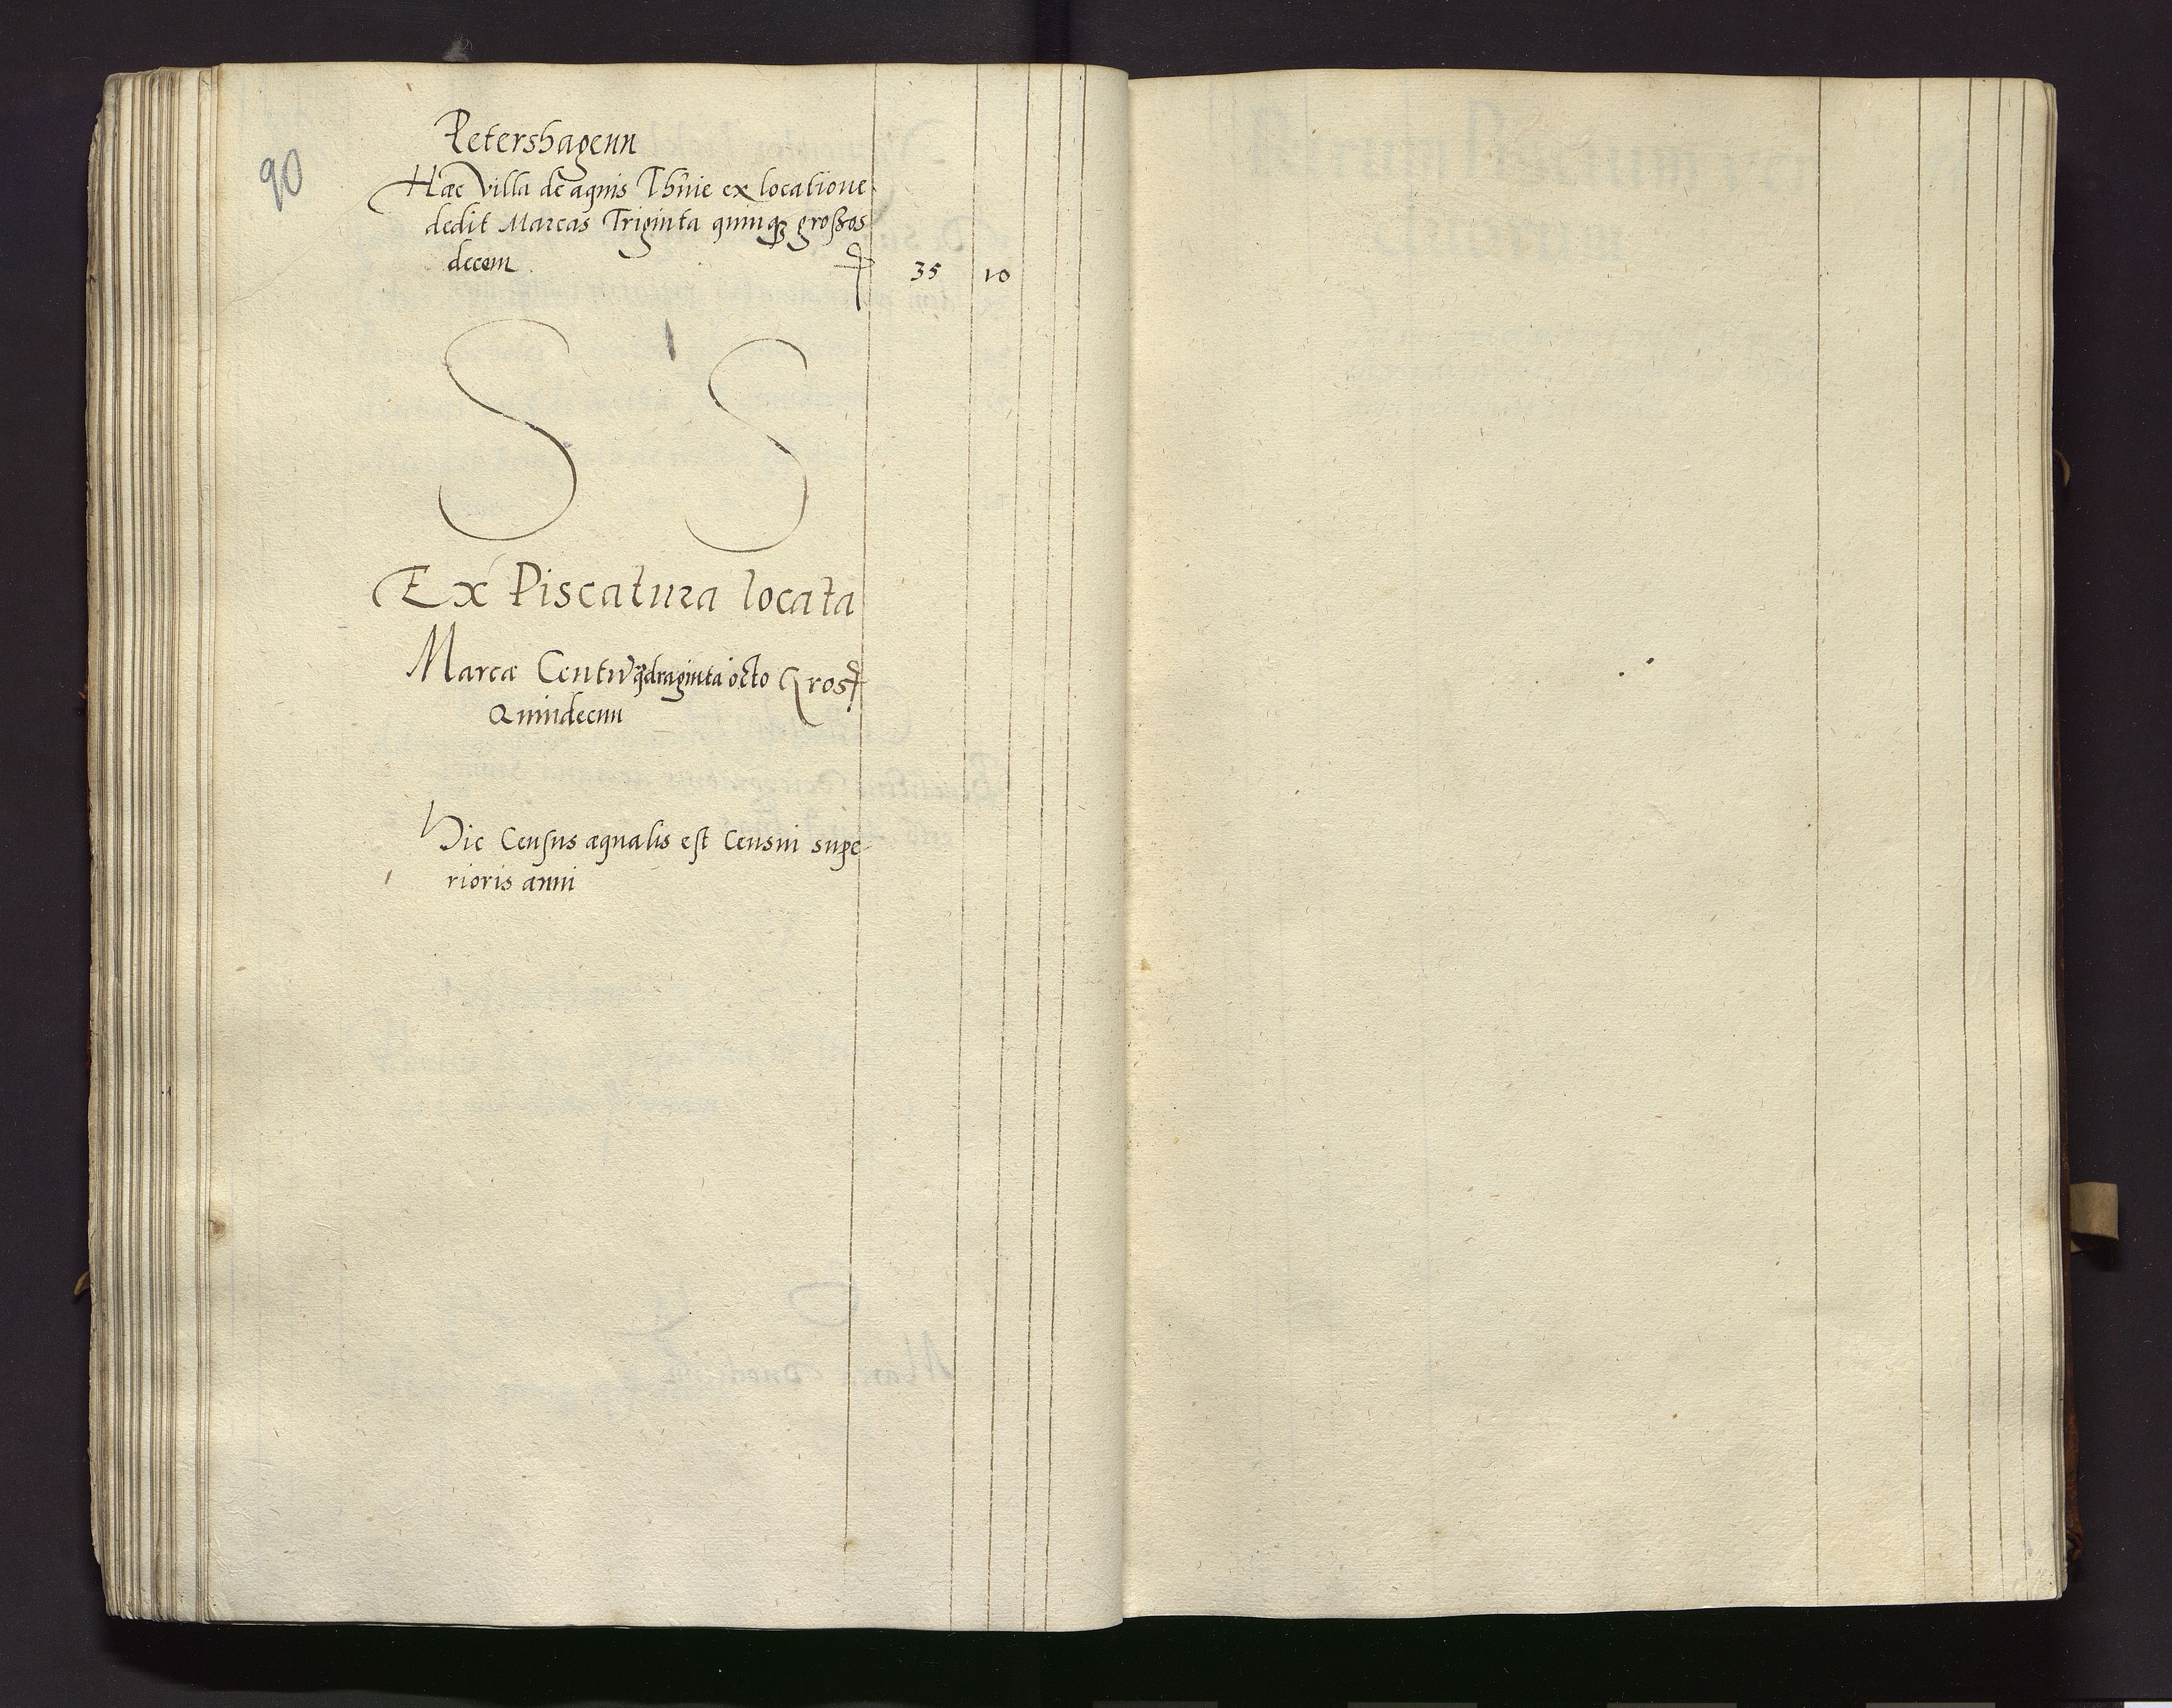 90
Petershagenn
Hæc Villa de aquis Thinie ex locatione
dedit Marcas Triginta quinqz großos
decem 35 10
S S
Ex Piscatura locata
Marcæ Centũ qdraginta octo Gros
Quindecim
Hic Census æqualis est Censui supe-
rioris anni